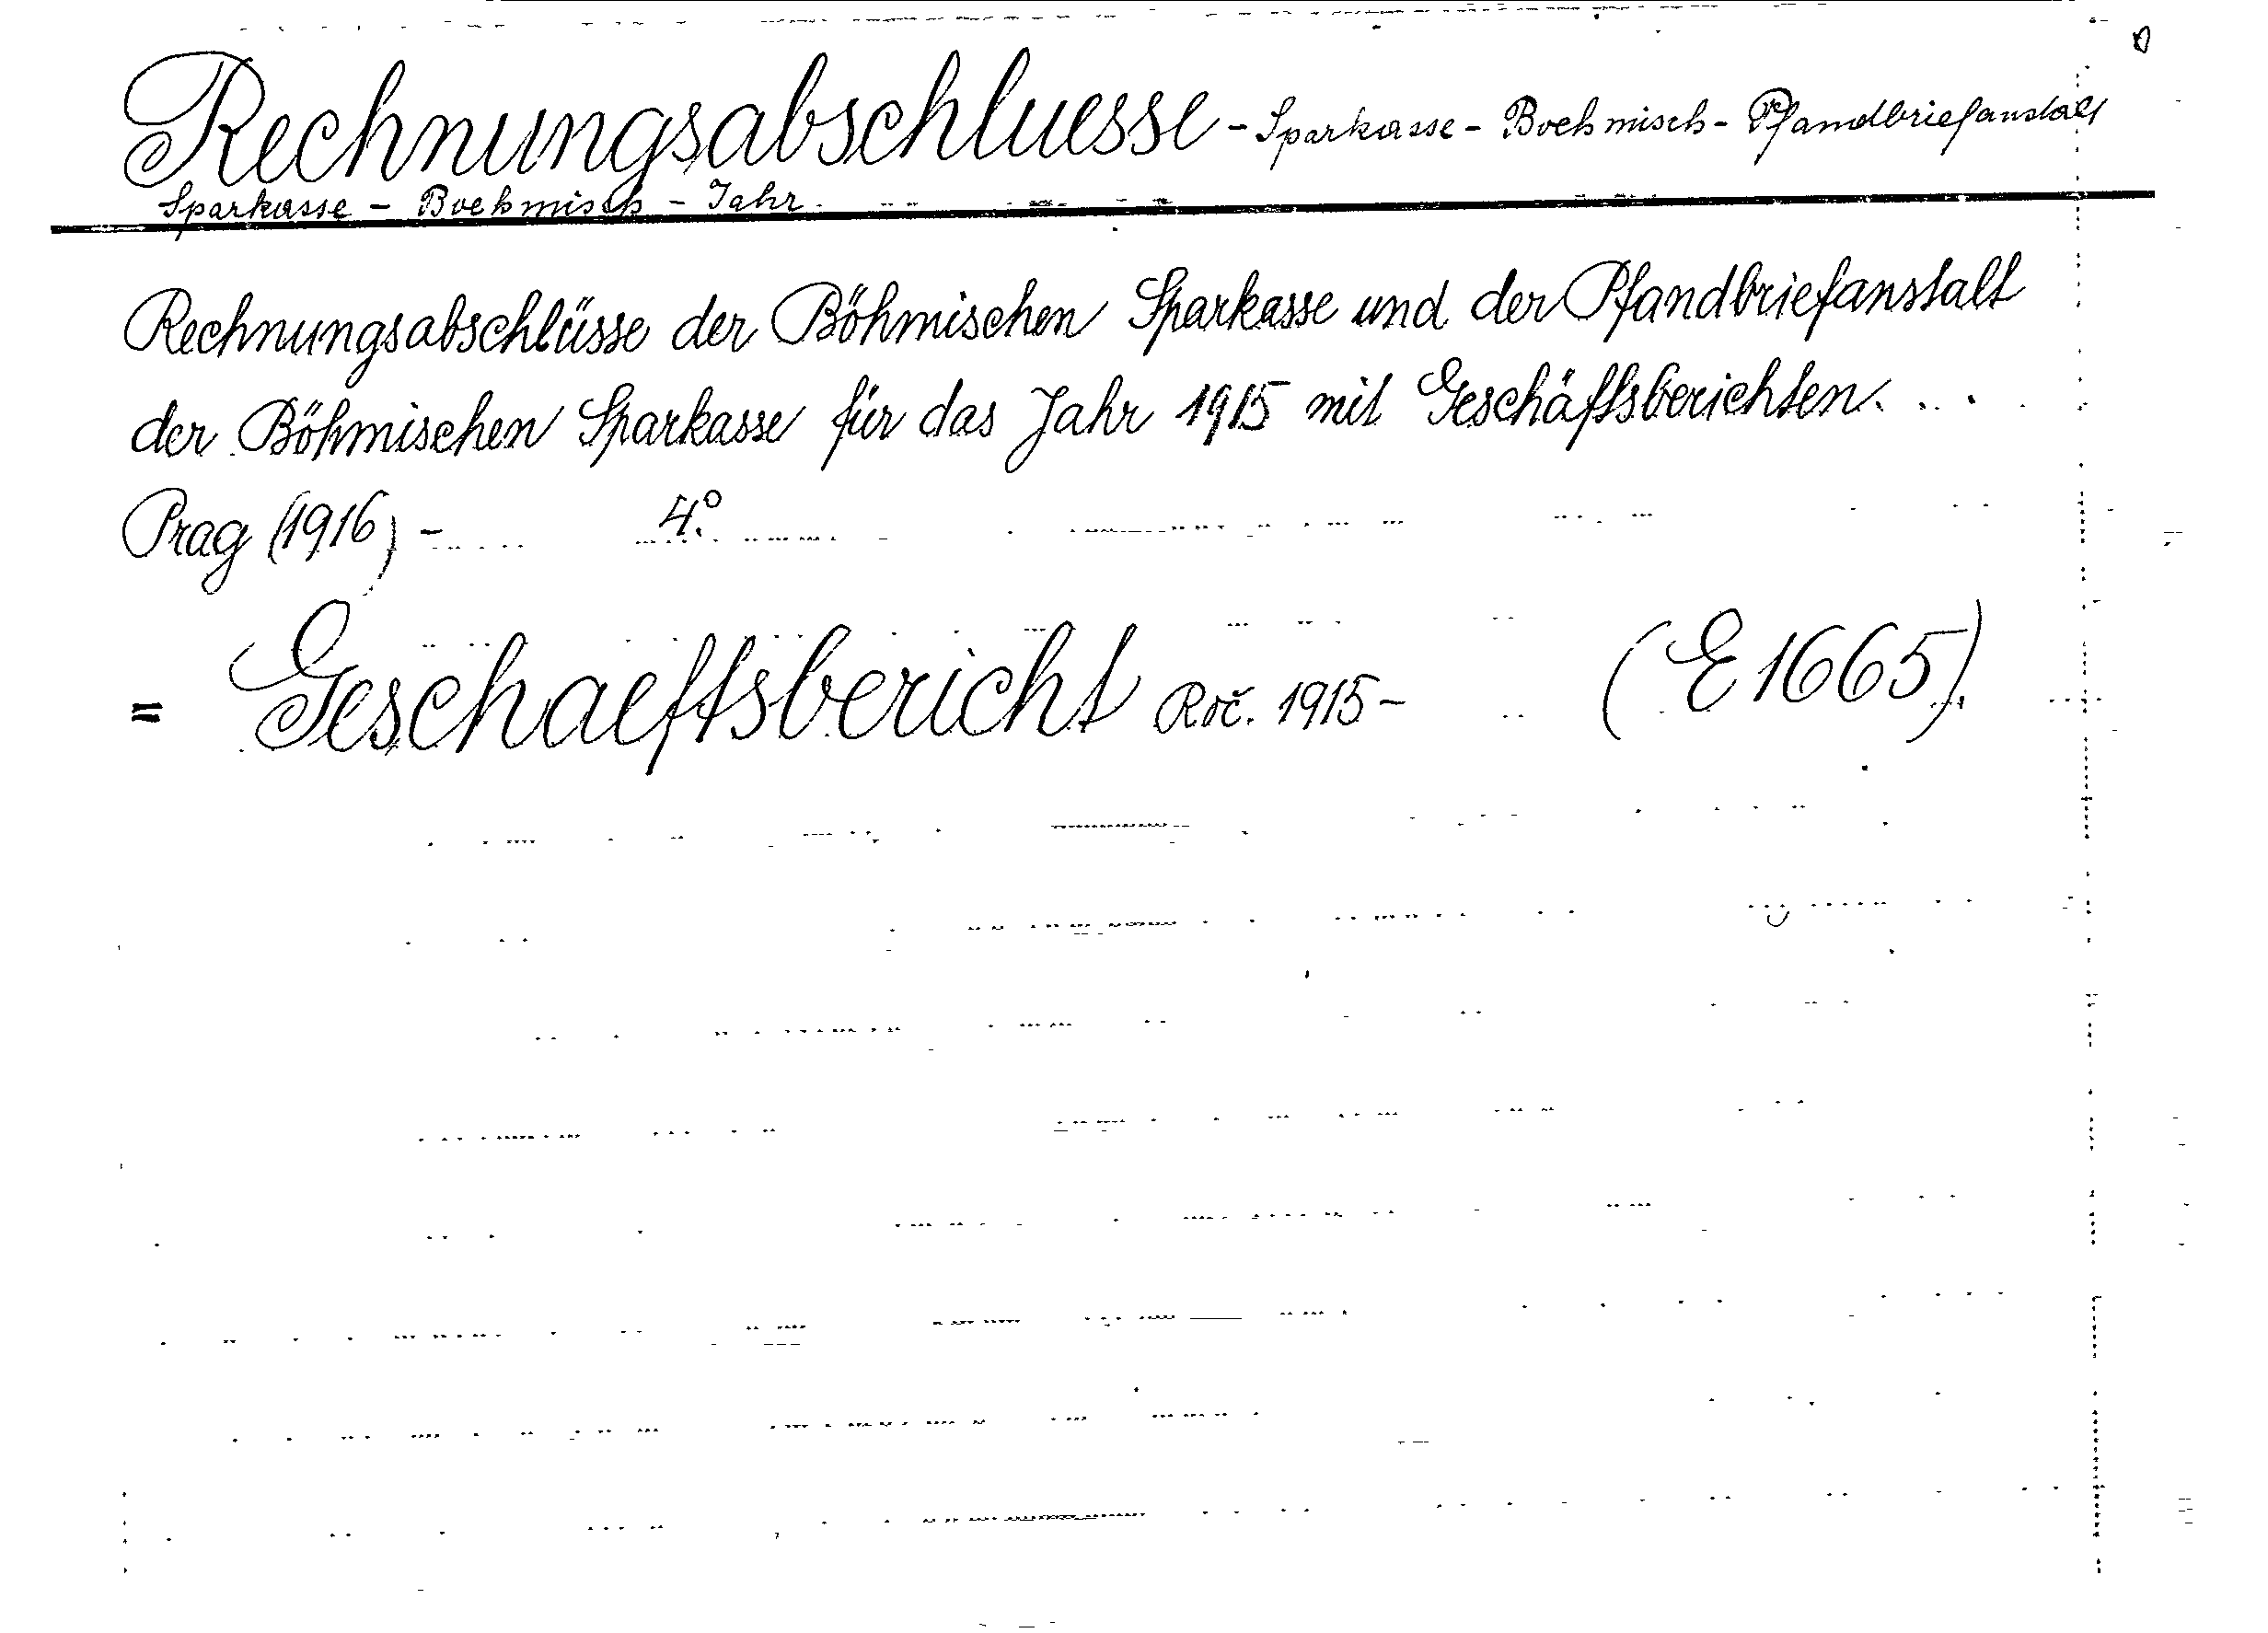 Rechnungsabschluesse - Sparkasse - Boehmisch - Pfandbriefanstalt
Sparkasse - Boehmisch - Jahr.
Rechnungsabschlüsse der Böhmischen Sparkasse und der Pfandbriefanstalt
der Böhmischen Sparkasse für das Jahr 1915 mit Geschäftsberichten. . . .
Prag (1916) - 4°.
= Geschaeftsbericht Roč. 1915 - (E1665).